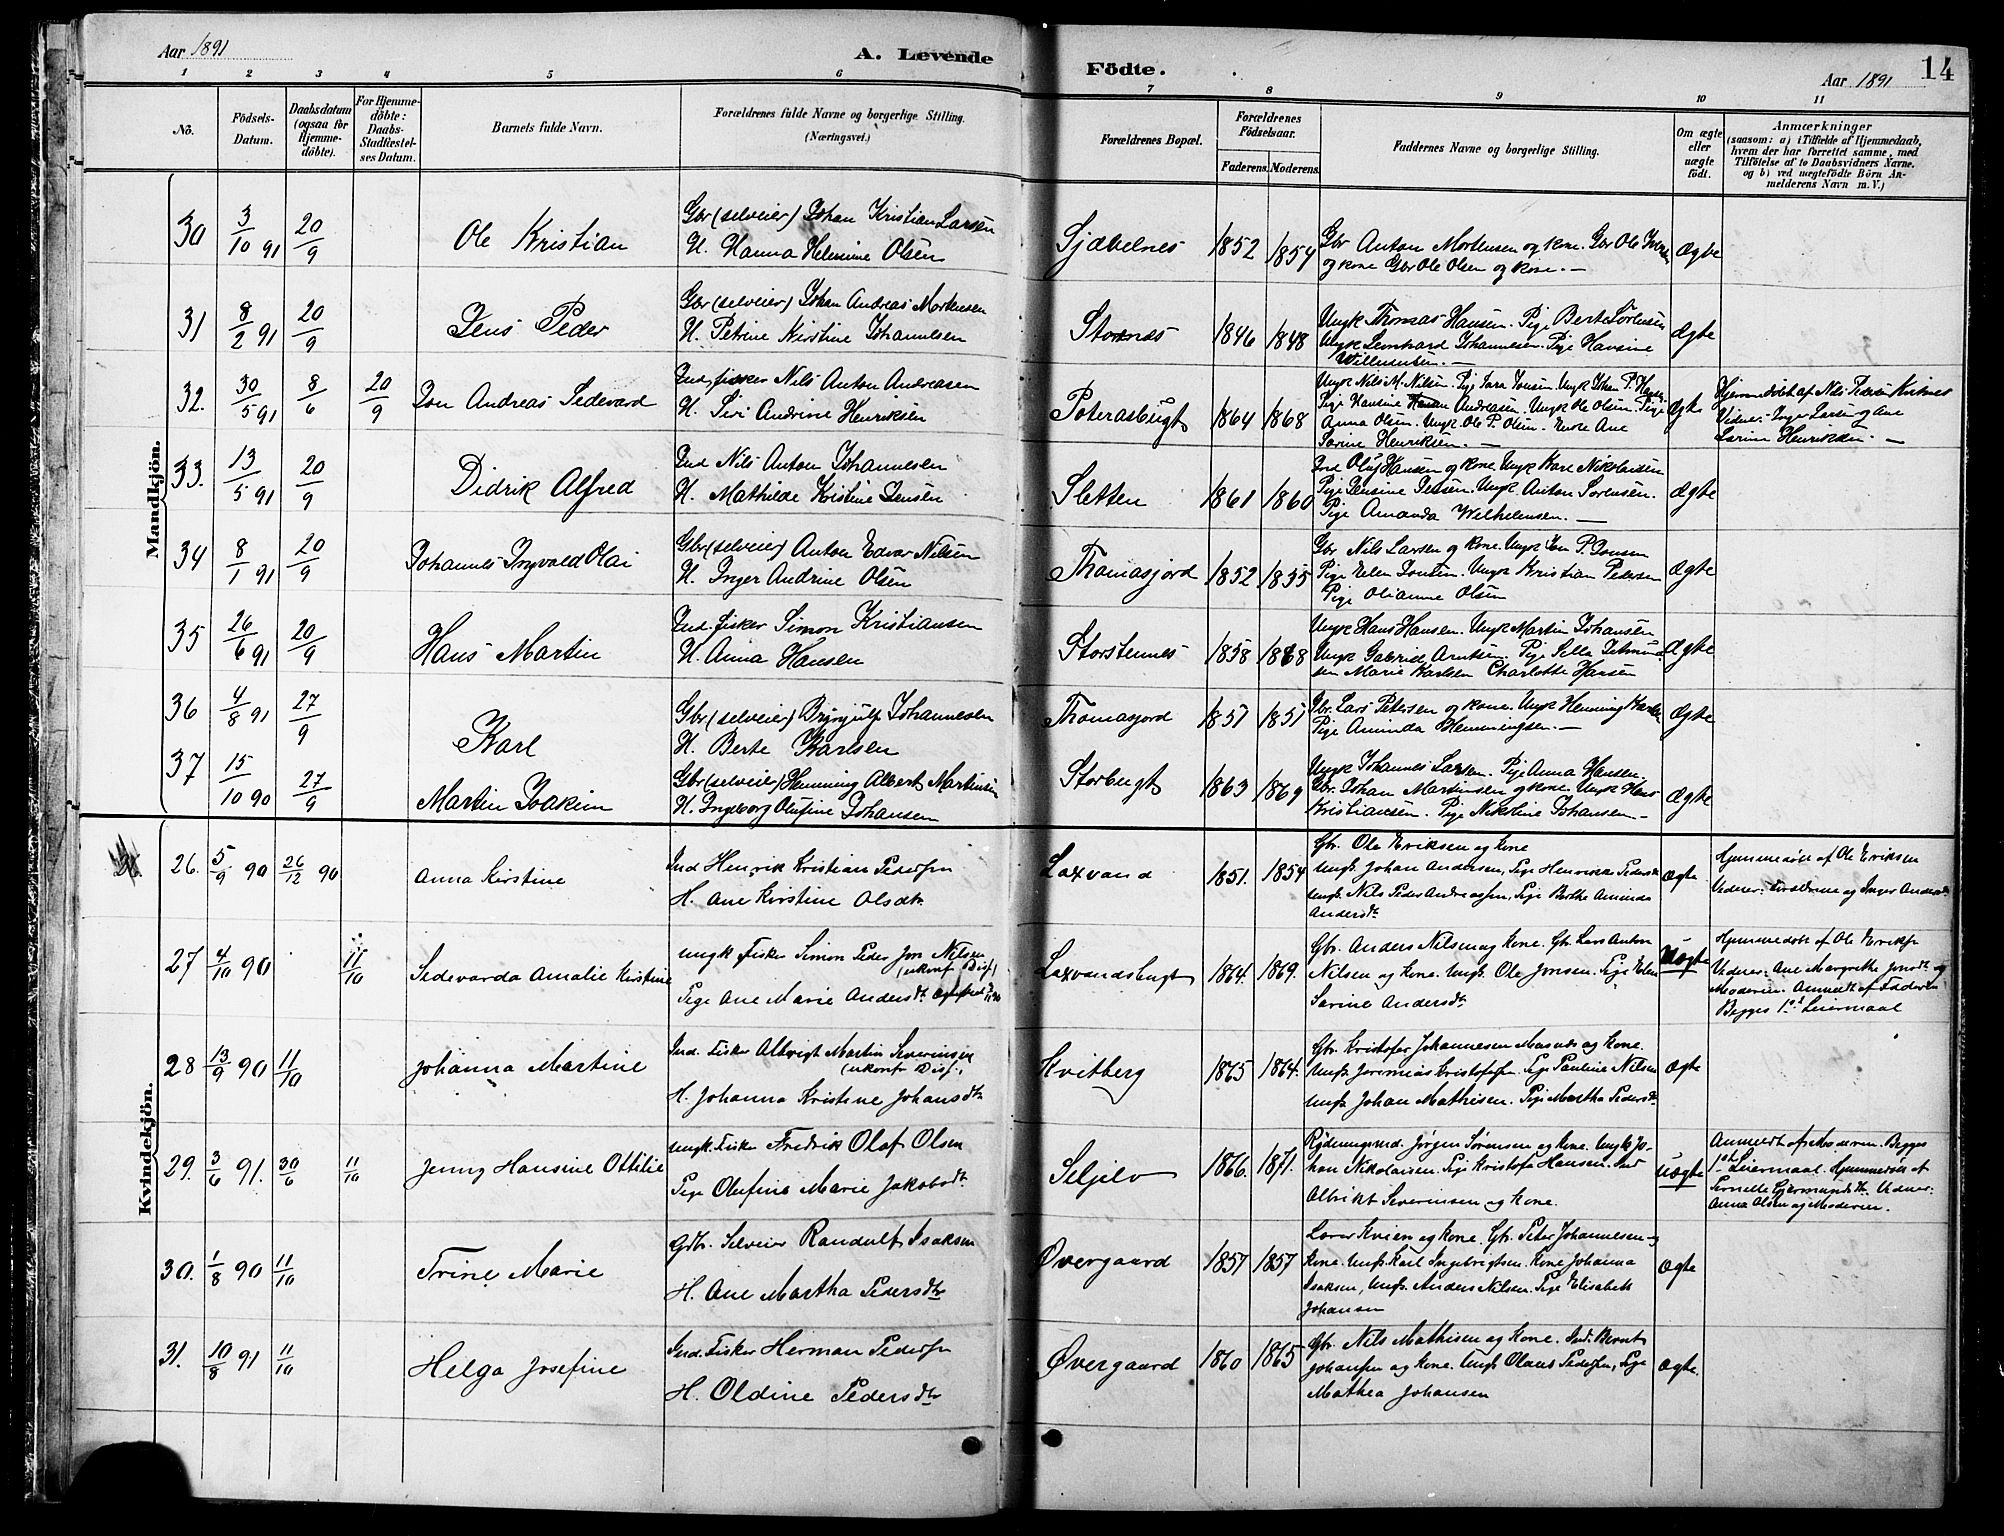 Aar 1891
A. Levende Födte.
Aar 1891
14
1 2 3 4 5 6 7 8 9 10 11
No.
Födsels-
Datum.
Daabsdatum
(ogsaa for
Hjemme-
döbte).
For Hjemme-
döbte:
Daabs-
Stadfæstel-
ses Datum.
Barnets fulde Navn.
Forældrenes fulde Navne og borgerlige Stilling.
(Næringsvei.)
Forældrenes Bopæl.
Forældrenes
Födselsaar.
Faderens. Moderens.
Faddernes Navne og borgerlige Stilling.
Om ægte
eller
uægte
födt.
Anmærkninger
(saasom: a) i Tilfælde af Hjemmedaab,
hvem der har forrettet samme, med
Tilföielse af to Daabsvidners Navne,
og b) ved uægtefödte Börn An-
melderens Navn m. V.)
Mandkjön.
30 3/10 91 20/9 Ole Kristian
Gbr (selveier) Johan Kristian Larsen
H. Hanna Helmine Olsen
Sjåvelnes 1852 1854
Gbr Anton Mortensen og kone. Gbr Ole Iversen
og kone Gbr Ole Olsen og kone. —
Ægte
31 8/2 91 20/9 Jens Peder
Gbr (selveier) Johan Andreas Mortensen
H. Petrine Kirstine Johannesen
Stornes 1846 1848
Ungk Thomas Hansen. Pige Berte Sörensen
Ungk Leonhard Johannesen. Pige Hansine
Willumsen. —
Ægte
32. 30/5 91 8/6 20/9 Jon Andreas Sedevard
Ind, fisker Nils Anton Andreasen
H. Siri Andrine Henriksen
Poterasbugt 1864 1868
Ungk Nils M. Nilsen. Pige Sara Jonsen. Ungk Johan P.
Pige Hansine Andreasen. Ungk Ole Olsen. Pige
Anna Olsen. Ungk Ole P. Olsen. Enke Ane
Sarine Henriksen. —
Ægte
Hjemmedöbt af Nils Pedersen
Vidner: Inger Larsen og Ane
Sarine Henriksen. —
33. 13/5 91 20/9 Didrik Alfred
Ind Nils Anton Johannesen
H. Mathilde Kristine Jensen
Sletten 1861 1860
Ind Oluf Hansen og kone. Ungk Kare Nikolaisen
Pige Jensine Jessen. Ungk Anton Sörensen.
Pige Amanda Wilhelmsen. —
Ægte
34 8/1 91 20/9 Johannes Ingvald Olai
Gbr (selveier) Anton Edvar Nilsen
H. Inger Andrine Olsen
Thomasjord 1852 1855
Gbr Nils Larsen og kone. Ungk Jon P. Jonsen
Pige Elen Jonsen. Ungk Kristian Pedersen
Pige Olianna Olsen
Ægte
35 26/6 91 20/9 Hans Martin
Ind, fisker Simon Kristiansen
H. Anna Hansen
Storstennes 1858 1868
Ungk Hans Hansen. Ungk Martin Johansen
Ungk Gabriel Arntsen. Pige Sella
sen Marie Karlsen Charlotte Hansen
Ægte
36 4/8 91 27/9 Karl
Gbr (selveier) Brynjulf Johannesen
H. Berte Karlsen
Thomasjord 1851 1851
Gbr. Lars Petersen og kone. Ungk Henning
Pige Aminda Henningsen. —
Ægte
37 15/10 90 27/9 Martin Joakim
Gbr (selveier) Henning Albert Martinsen
H. Ingeborg Olufine Johansen
Storbugt 1863 1869
Ungk Johannes Larsen. Pige Anna Hansen.
Gbr. Johan Martinsen og kone. Ungk Hans
Kristiansen. Pige Nikoline Johansen —
Ægte
Kvindekjön.
26. 5/9 90 26/12 90 Anna Kirstine
Ind Henrik Kristian Pedersen
H. Ane Kirstine Olsdtr.
Laxvand 1851. 1854
Gbr. Ole Eriksen og Kone
Ungk. Johan Andersen, Pige Henrikke Pedersdtr
Ungk. Nils Peder Andreassen, Pige Berthe Aminda
Andersdtr
Ægte
Hjemmedöbt af Ole Eriksen
Vidner: Forældrene og Inger Andersdtr
27 4/10 90 11/10 Sedevarda Amalie Kirstine
Ungk Fisker Simon Peder Jon Nilsen
(ukonf. Diss.)
Pige Ane Marie Andersdtr
Laxvandsbugt 1864. 1869.
Gbr. Anders Nilsen og Kone. Gbr Lars Anton
Nilsen og Kone. Ungk. Ole Jonsen. Pige Elen
Sarine Andersdtr
Uægte
Hjemmedöbt af Ole Eriks.
Vidner: Ane Margrethe Jonsdtr og
Moderen. Anmeldt af Faderen
Begges 1ste Leiermaal
28 13/9 90 11/10 Johanna Martine
Ind. Fisker Albrigt Martin Severinsen
(ukonf. Diss.)
H. Johanna Kristine Johansdtr
Kvitberg 1865 1864.
Gbr. Kristofer Johannesen Masnes og Kone.
Ungk. Jeremias Kristofersen. Pige Pauline Nilsen
Ungk. Johan Mathisen. Pige Martha Pedersdtr
Ægte
29. 3/6 91. 30/6 11/10 Jenny Hansine Ottilie
Ungk. Fisker Fredrik Olaf Olsen
Pige Olufine Marie Jakobsdtr
Seljelv 1866. 1871.
Rydningsmd. Jørgen Sørensen og Kone. Ungk Jo-
han Nikolaisen. Pige Kristofa Hansen. Ind
Albrikt Severinsen og Kone.
Uægte
Anmeldt af Moderen. Begges
1ste Leiermaal. Hjemmedöbt af
Pernille Gjermundsdtr. Vidner:
Anna Olsen og Moderen.
30. 1/8 90 11/10 Trine Marie
Gbr. Selveier Randulf Isaksen
H. Ane Martha Pedersdtr
Øvergaard 1857 1857
Lærer Kvien og Kone. Gbr. Peter Johannesen og
Kone. Ungk. Karl Ingebrigtsen. Kone Johanna
Isaksen, Ungk. Anders Nilsen. Pige Elisabeth
Johansen
Ægte
31. 10/8 91 11/10 Helga Josefine
Ind. Fisker Herman Pedersen
H. Oldine Pedersdtr
Øvergaard 1860 1865
Gbr. Nils Mathisen og Kone. Ind. Bernt
Johansen og Kone. Ungk Olaus Pedersen, Pige
Mathea Johansen
Ægte.